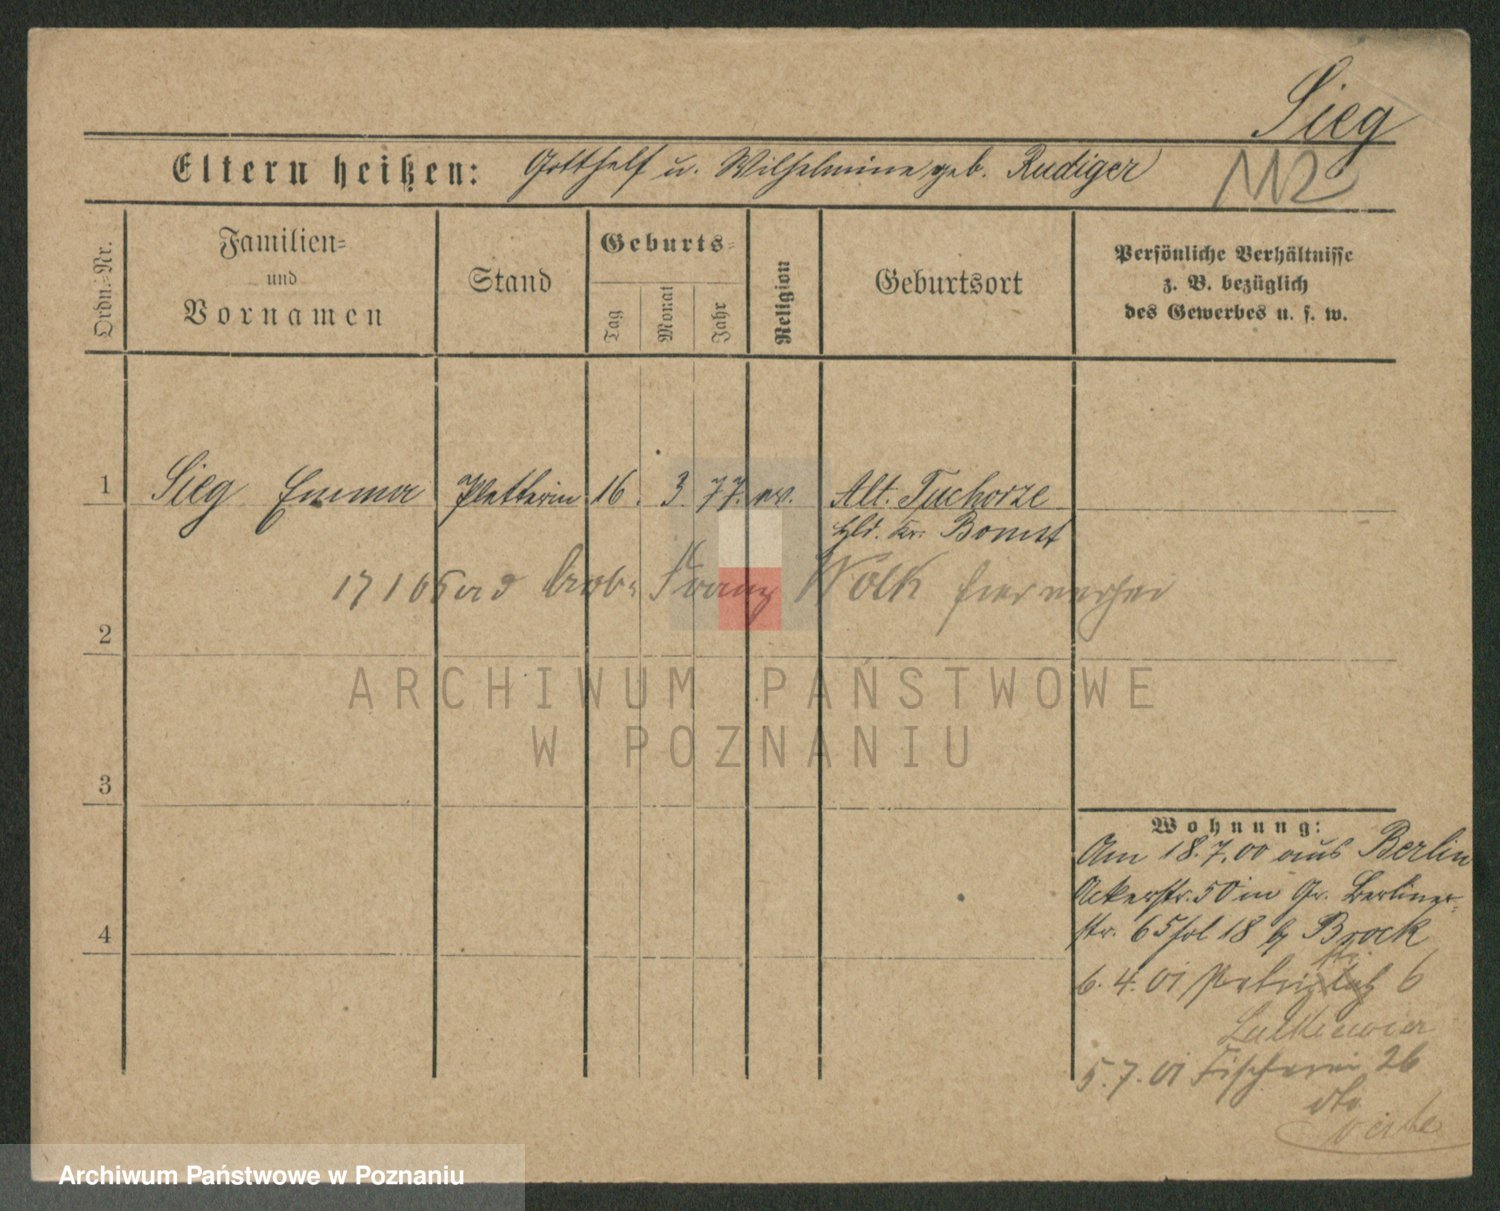 Sieg
112
Eltern heißen: Gotthelf u. Wilhelmine geb. Rudiger
Ordn.-Nr.
Familien-
und
Vornamen
Stand
Geburts-
Tag
Monat
Jahr
Religion
Geburtsort
Persönliche Verhältnisse
z. B. bezüglich
des Gewerbes u. s. w.
1 Sieg Emma Plätterin 16. 3. 77. ev. Alt. Tuchorze
Kr. Bomst
Franz Wolk
2
ARCHIWUM PAŃSTWOWE
W POZNANIU
3
Wohnung:
Am 18.7.00 aus Berlin
Ackerstr. 50 in Gr. Berliner-
str. 65 hol 18 b Brock
4
6. 4. 01 6
5. 7. 01 Fischerei 26
Archiwum Państwowe w Poznaniu